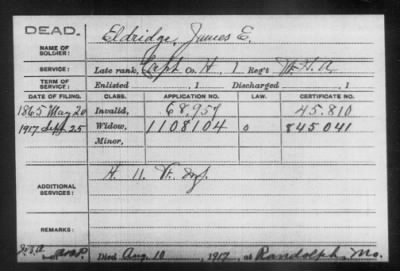 DEAD.
NAME OF SOLDIER: Eldridge, James E.
SERVICE: Late rank, Capt Co. H, 1 Reg't Vt. H. A.
TERM OF SERVICE: Enlisted , 1 Discharged , 1
DATE OF FILING. CLASS. APPLICATION NO. LAW. CERTIFICATE NO.
1865 May 20 Invalid, 68,957 45.810
1917 Sept 25 Widow, 1108104 0 845041
Minor,
ADDITIONAL SERVICES: H. 11 Vt. Inf.
REMARKS:
Died Aug. 10, 1917, at Randolph, Mo.